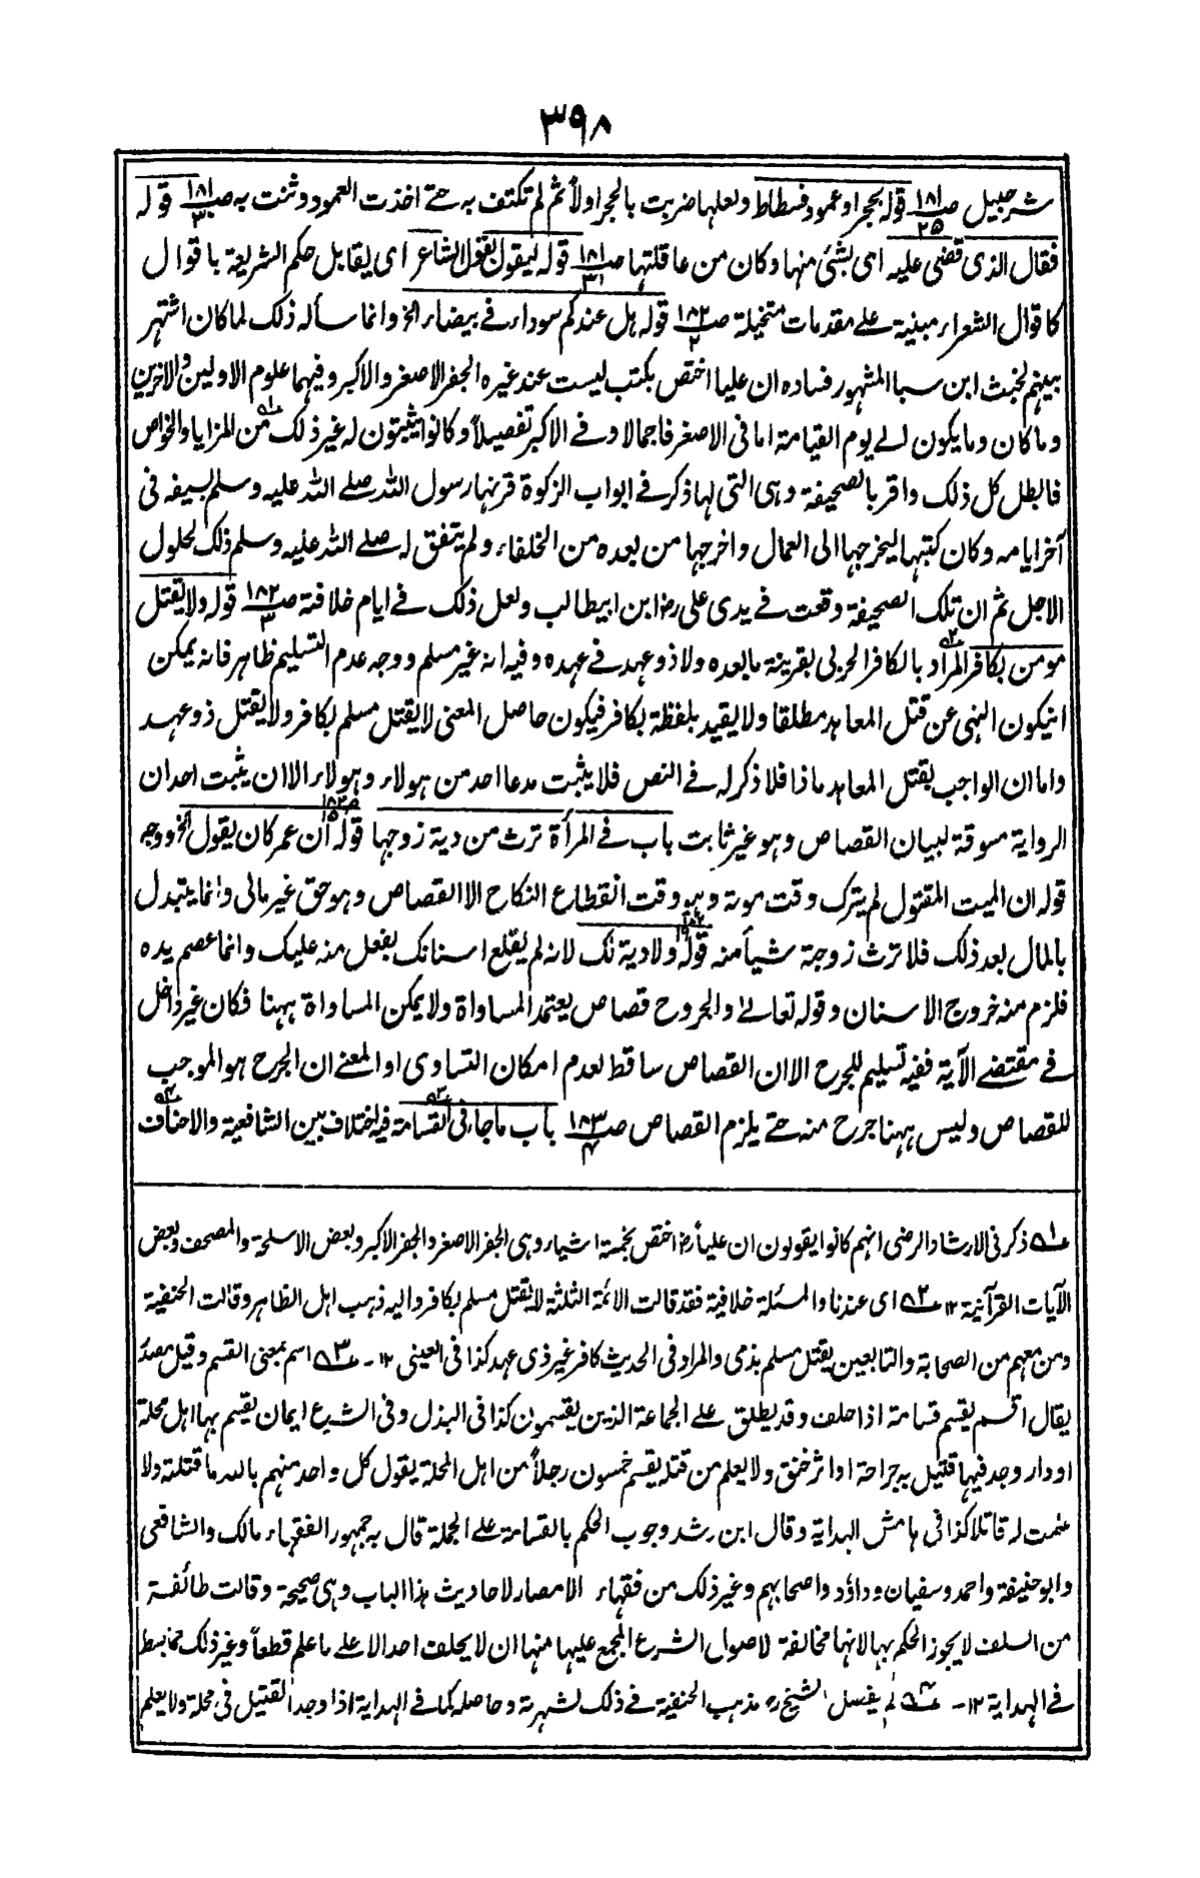 ٣٩٨
شرحبيل صـ١٨١/٢٥ قوله بحجر او عمود فسطاط ولعلها ضربت بالحجر اولاً ثم لم تكتف به حتے اخذت العمود وثنت به صـ١٨١/٣ قوله
فقال الذى قضى عليه اى بشئ منها وكان من عاقلتها صـ١٨١/٣١ قوله ليقول بقول الشاعر اى يقابل حكم الشريعة باقوال
كاقوال الشعراء مبنية علے مقدمات متخيلة صـ١٨٢/٢ قوله هل عندكم سوداء فے بيضاء الخ وانما سأله ذلك لما كان اشتهر
بينهم لخبث ابن سبا المشهور فساده ان عليا اختص بكتب ليست عند غيره الجفر الاصغر والاكبر وفيهما علوم الاولين والاخرين
وما كان وما يكون الے يوم القيامة اما فى الاصغر فاجمالا وفے الاكبر تفصيلاً وكانوا يثبتون له غير ذلك ؎١ من المزايا والخواص
فابطل كل ذلك واقر بالصحيفة وهى التى لها ذكر فے ابواب الزكوة قرنها رسول الله صلے الله عليه وسلم بسيفه فى
آخر ايامه وكان كتبها ليخرجها الى العمال واخرجها من بعده من الخلفاء ولم يتفق له صلے الله عليه وسلم ذلك لحلول
الاجل ثم ان تلك الصحيفة وقعت فے يدى على رض ابن ابيطالب ولعل ذلك فے ايام خلافته صـ١٨٢/٣ قوله ولا يقتل
مومن بكافر ؎٢ المراد بالكافر الحربى بقرينة ما بعده ولا ذو عهد فے عهده وفيه انه غير مسلم ووجه عدم التسليم ظاهر فانه يمكن
انيكون النهى عن قتل المعاهد مطلقا ولا يقيد بلفظة بكافر فيكون حاصل المعنى لا يقتل مسلم بكافر ولا يقتل ذو عهد
واما ان الواجب بقتل المعاهد ماذا فلا ذكر له فے النص فلا يثبت مدعا احد من هولاء وهولاء الا ان يثبت احد ان
الرواية مسوقة لبيان القصاص وهو غير ثابت باب فے المرأة ترث من دية زوجها صـ١٨٢/١٥ قوله ان عمر كان يقول الخ ووجه
قوله ان الميت المقتول لم يترك وقت موته وهو وقت انقطاع النكاح الا القصاص وهو حق غير مالى وانما يتبدل
بالمال بعد ذلك فلا ترث زوجة شيأ منه قوله ولا دية لك لانه لم يقلع اسنانك بفعل منه عليك وانما عصم يده
فلزم منه خروج الاسنان وقوله تعالے والجروح قصاص يعتمد المساواة ولا يمكن المساواة ههنا فكان غير داخل
فے مقتضے الآية ففيه تسليم للجرح الا ان القصاص ساقط لعدم امكان التساوى او المعنے ان الجرح هو الموجب
للقصاص وليس ههنا جرح منه حتے يلزم القصاص صـ١٨٣/٤ باب ما جاء فى القسامة ؎٣ فيه اختلاف بين الشافعية والاحناف ؎٤
؎١ ذكر فى الارشاد الرضى انهم كانوا يقولون ان علياً رض اختص بخمسة اشياء وهى الجفر الاصغر والجفر الاكبر وبعض الاسلحة والمصحف وبعض
الآيات القرآنية ١٢ ؎٢ اى عندنا والمسئلة خلافية فقد قالت الائمة الثلثة لا يقتل مسلم بكافر واليه ذهب اهل الظاهر وقالت الحنفية
ومن معهم من الصحابة والتابعين يقتل مسلم بذمى والمراد فى الحديث كافر غير ذى عهد كذا فى العينى ١٢ - ؎٣ اسم بمعنى القسم وقيل مصدر
يقال اقسم يقسم قسامة اذا حلف وقد يطلق علے الجماعة الذين يقسمون كذا فى البذل وفى الشرع ايمان يقسم بها اهل محلة
او دار وجد فيها قتيل به جراحة او اثر خنق ولا يعلم من قتله يقسم خمسون رجلاً من اهل المحلة يقول كل واحد منهم بالله ما قتلته ولا
علمت له قاتلا كذا فى هامش الهداية وقال ابن رشد وجوب الحكم بالقسامة علے الجملة قال به جمهور الفقهاء مالك والشافعى
وابو حنيفة واحمد وسفيان وداؤد واصحابهم وغير ذلك من فقهاء الامصار لاحاديث هذا الباب وهى صحيحة وقالت طائفة
من السلف لا يجوز الحكم بها لانها مخالفة لاصول الشرع المجمع عليها منها ان لا يحلف احد الا علے ما علم قطعاً وغير ذلك مما بسط
فے الهداية ١٢ - ؎٤ لم يفصل الشيخ رح مذهب الحنفية فے ذلك لشهرته وحاصله كما فے الهداية اذا وجد القتيل فى محلة ولا يعلم